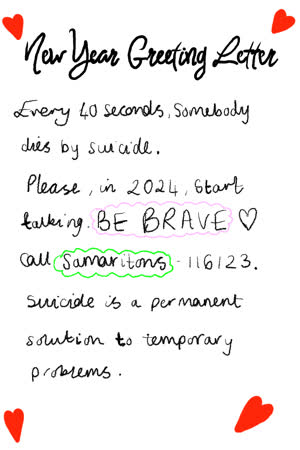 New Year Greeting Letter
Every 40 seconds, Somebody
dies by suicide.
Please, in 2024, start
talking. BE BRAVE ♡
Call Samaritons - 116123.
Suicide is a permanent
solution to temporary
problems.